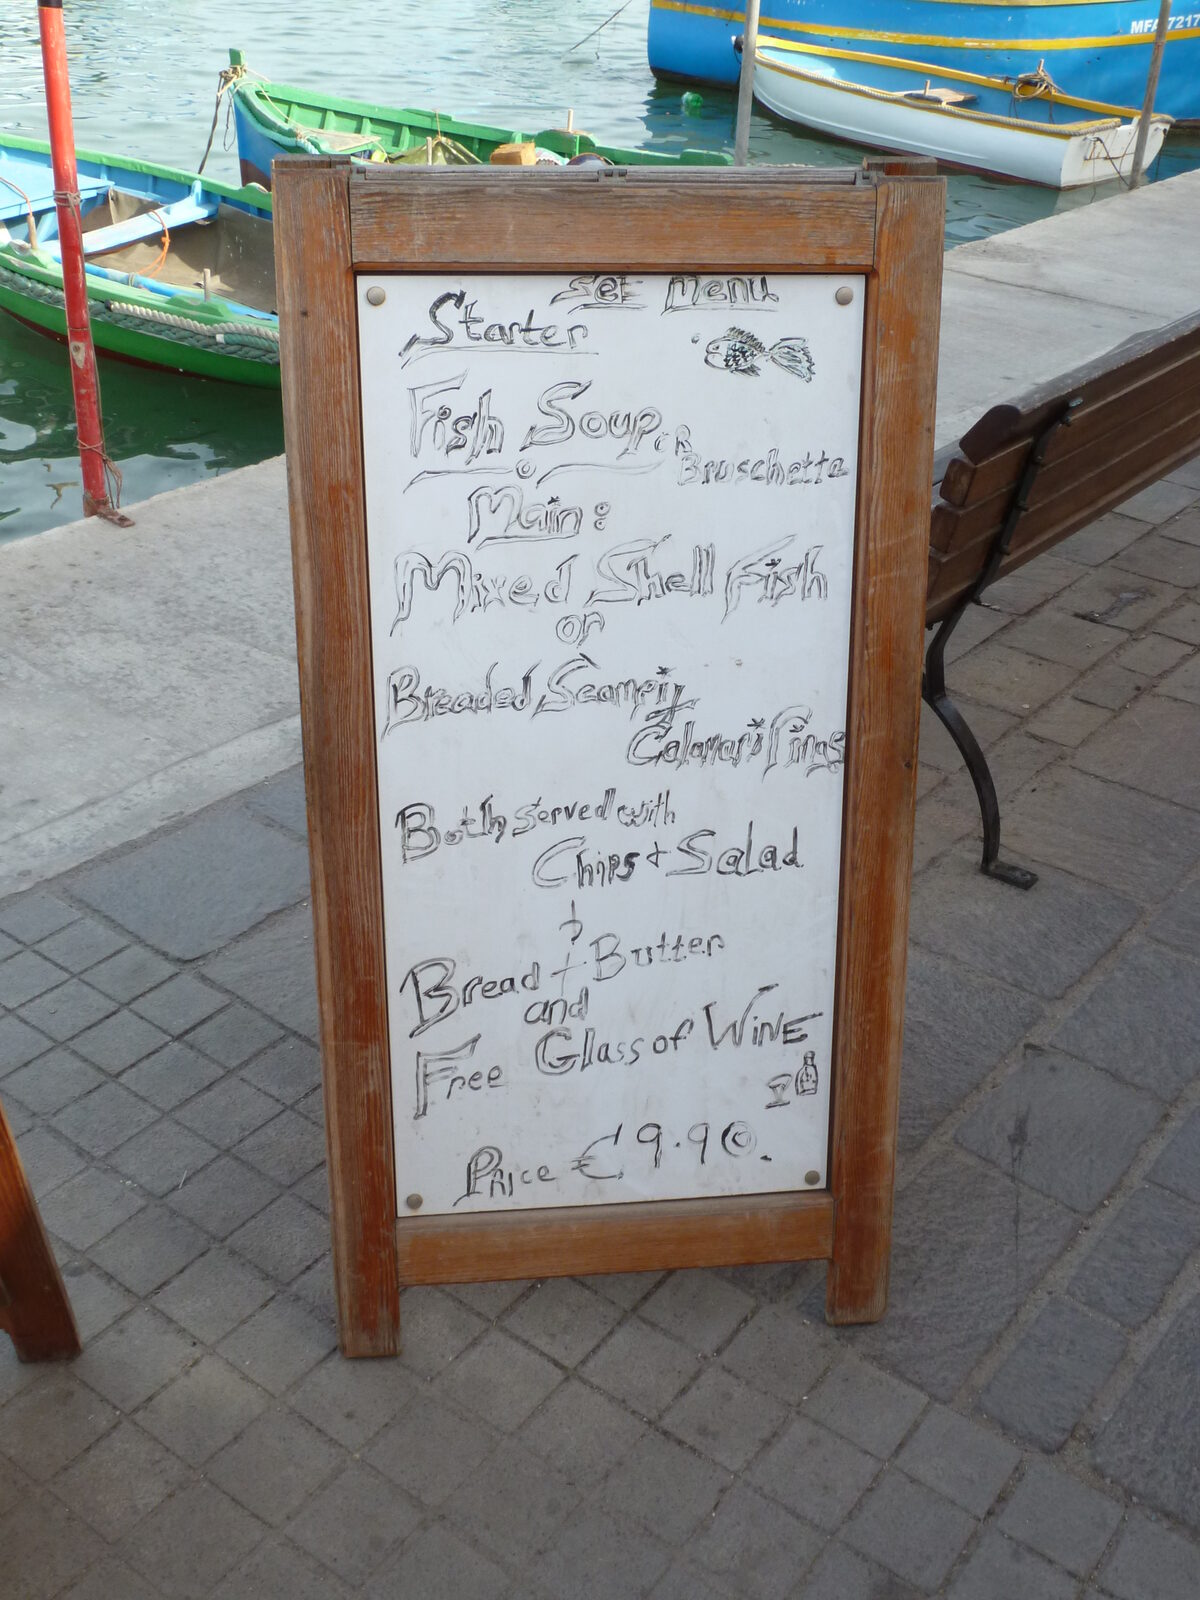 MFA 7217
Set Menu
Starter
Fish Soup OR
Bruschetta
Main:
Mixed Shell Fish
or
Breaded Scampi +
Calamari Rings
Both served with
Chips + Salad
+
Bread + Butter
and
Free Glass of WINE
Price € 9.90.